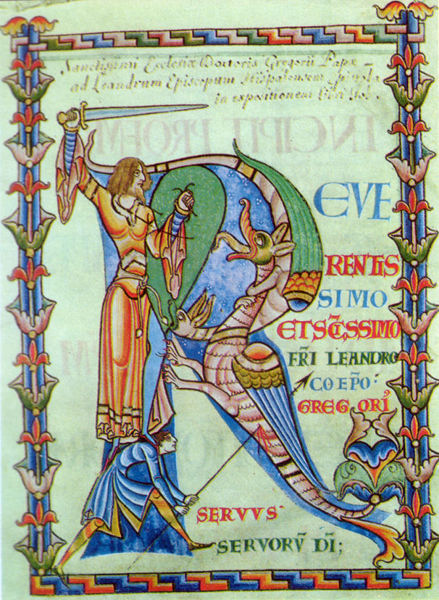 Sanctissimi Ecclesiæ Doctoris Gregorii Papæ
ad Leandrum Episcopum Hispalensem
in expositionem libri Iob.
REVE
RENTIS
SIMO
ET SCISSIMO
FRI LEANDRO
COEPO:
GREGORI,
SERVVS
SERVORV DI;